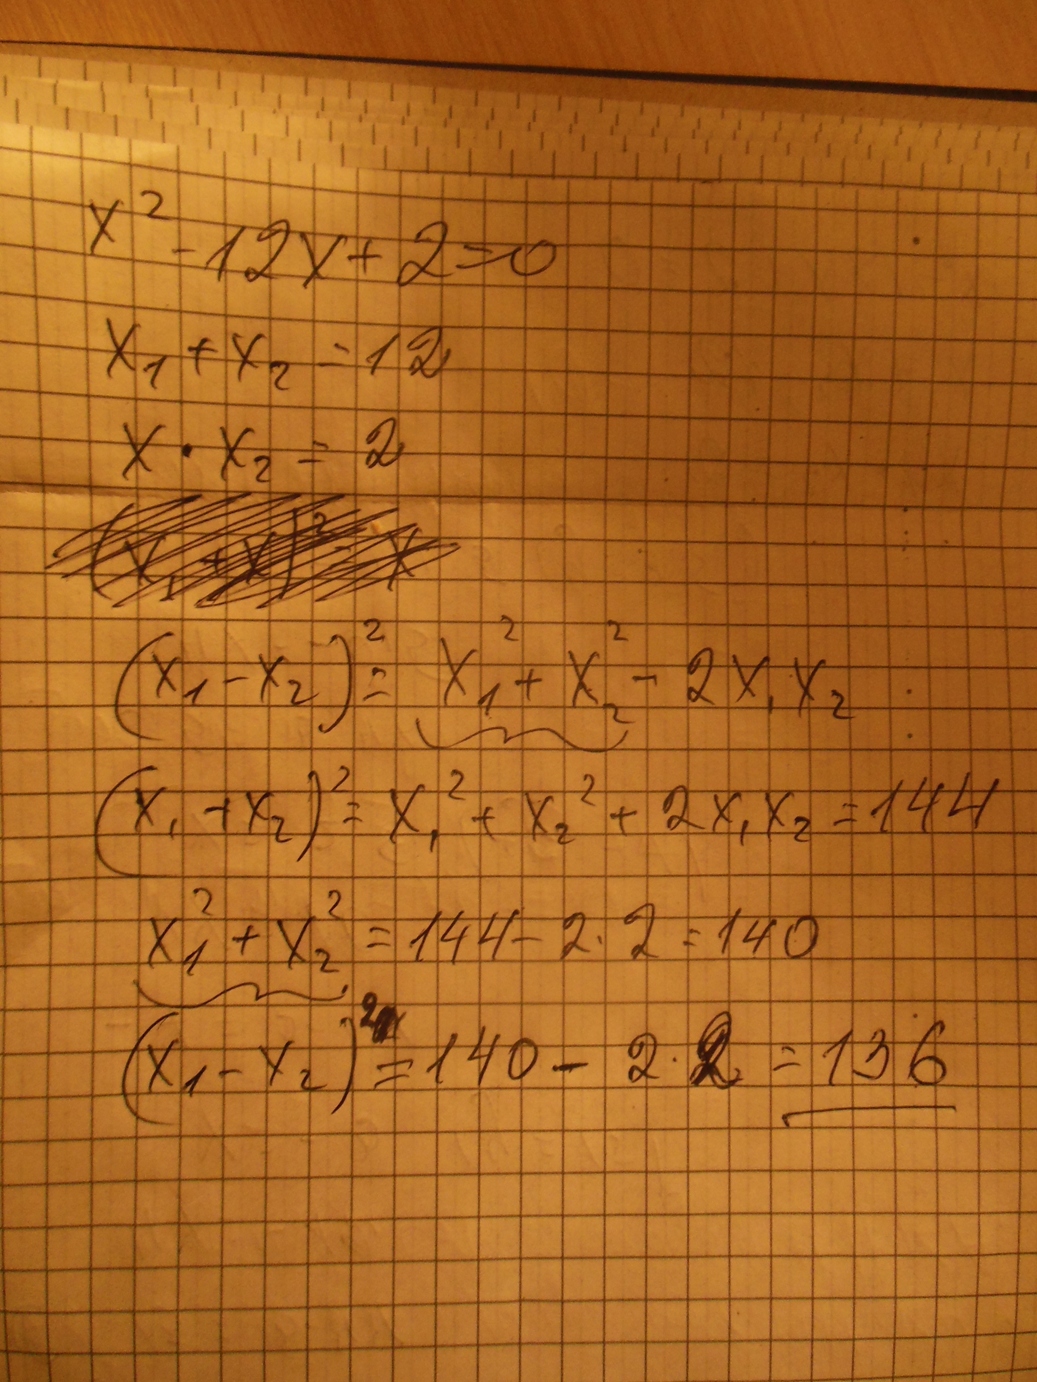 x² - 12x + 2 = 0
x₁ + x₂ = 12
x · x₂ = 2
(x₁ - x₂)² = x₁² + x₂² - 2x₁x₂
(x₁ + x₂)² = x₁² + x₂² + 2x₁x₂ = 144
x₁² + x₂² = 144 - 2·2 = 140
(x₁ - x₂)² = 140 - 2·2 = 136